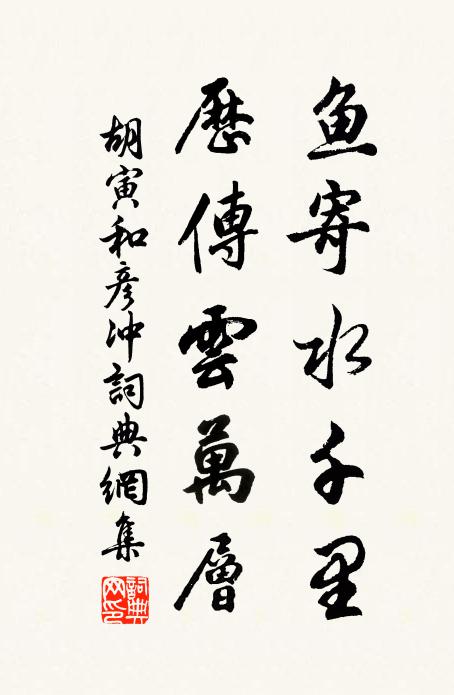 鱼寄水千里
歷傳雲萬層
胡寅和彥冲詞典網集
詞典网印